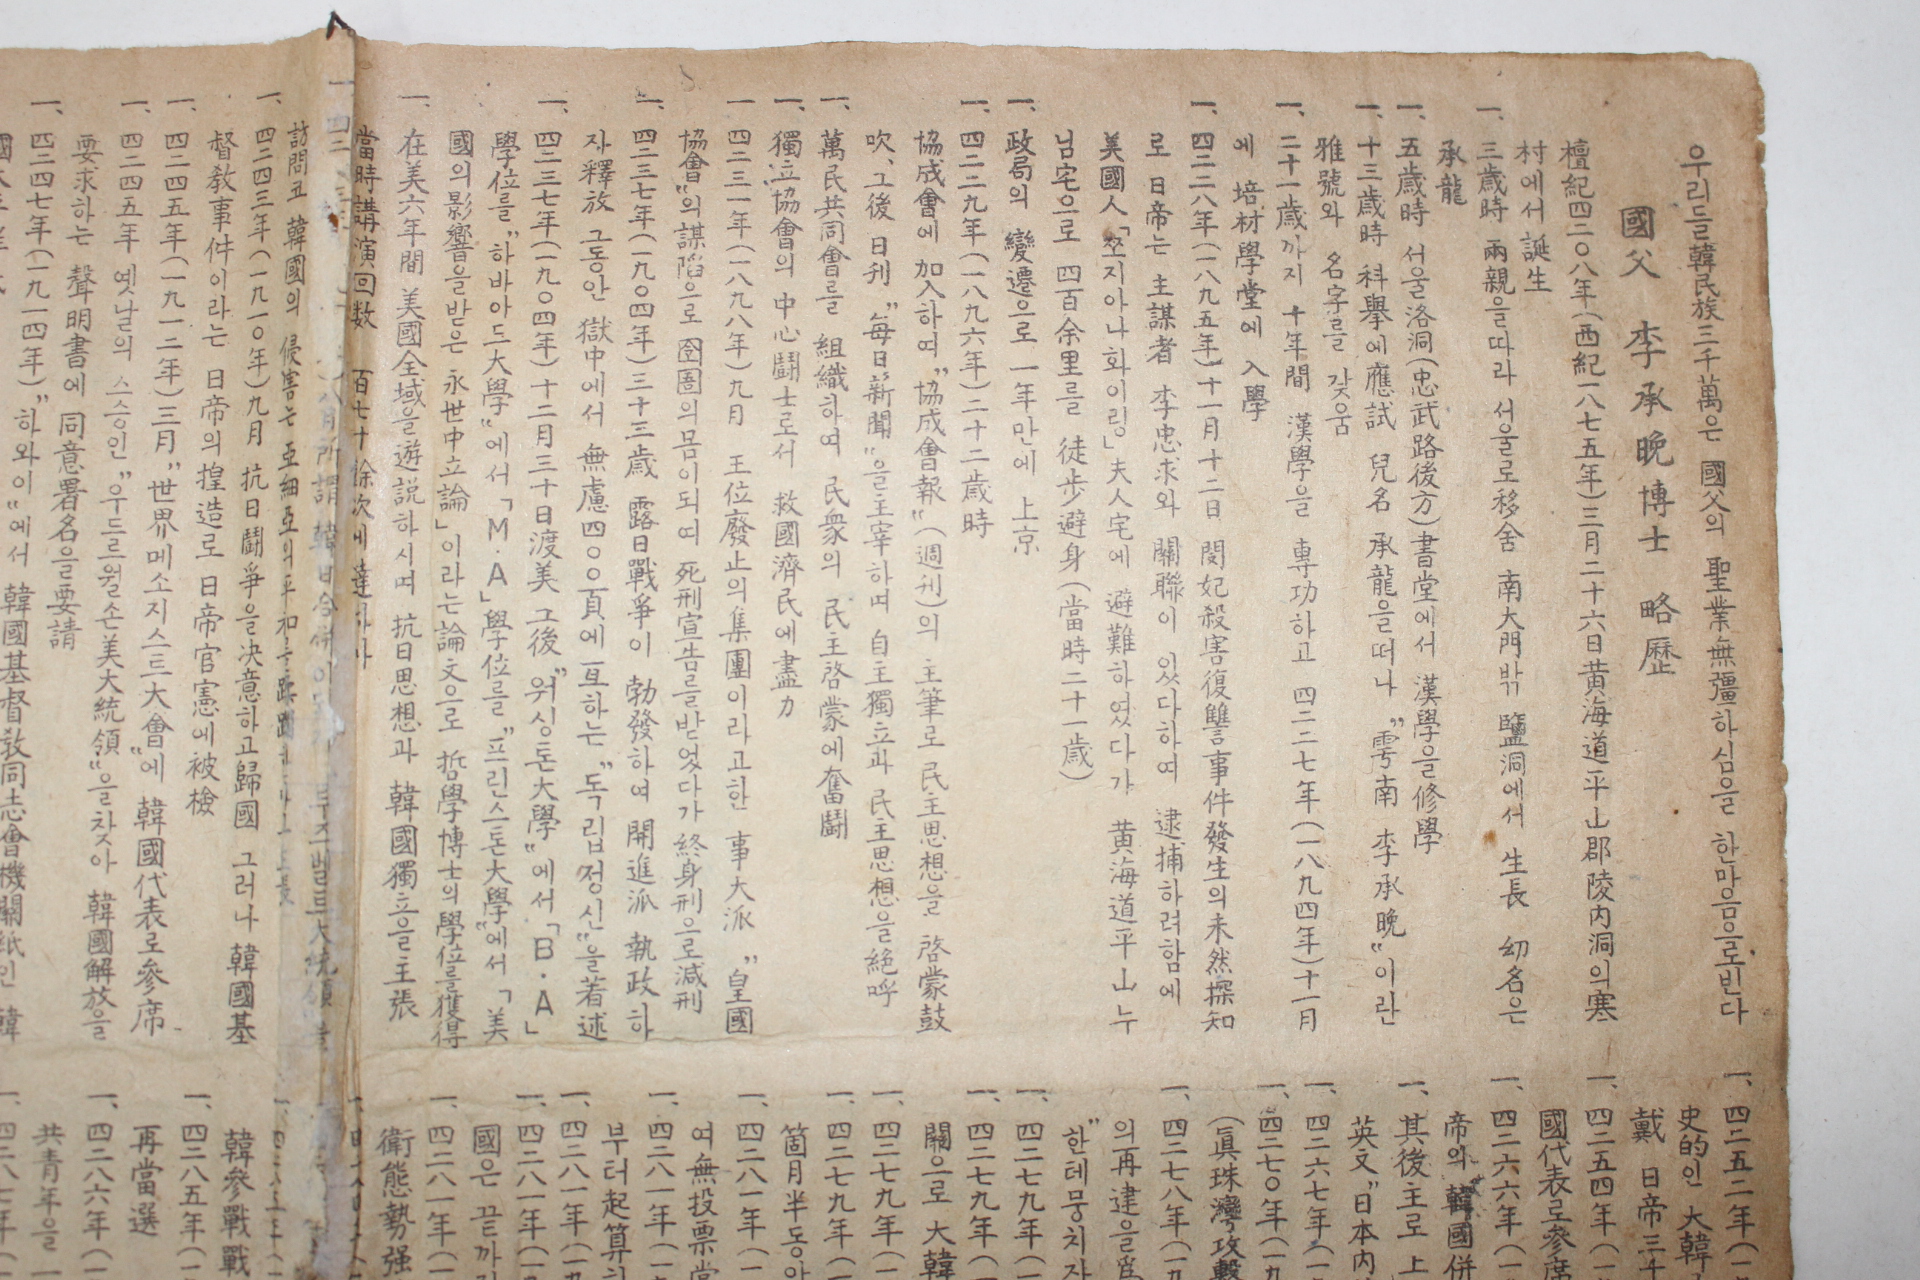 우리들 韓民族 三千萬은 國父의 聖業無彊하심을 한마음으로 빈다
國父 李承晩 博士 略歷
檀紀四二〇八年(西紀一八七五年)三月二十六日 黃海道平山郡陵內洞의 寒
村에서 誕生
一、三歲時 兩親을따라 서울로移舍 南大門밖 鹽洞에서 生長 幼名은
承龍
一、五歲時 서울洛洞(忠武路後方)書堂에서 漢學을修學
一、十三歲時 科擧에應試 兒名 承龍을떠나 "雩南 李承晩"이란
雅號와 名字를 갖음
一、二十一歲까지 十年間 漢學을 專功하고 四二二七年(一八九四年)十一月
에 培材學堂에 入學
一、四二二八年(一八九五年)十一月十二日 閔妃殺害復讐事件發生의未然探知
로 日帝는 主謀者 李忠求와 關聯이 있다하여 逮捕하려함에
美國人「쪼지아나화이링」夫人宅에 避難하였다가 黃海道平山 누
님宅으로 四百余里를 徒步避身(當時二十一歲)
一、政局의 變遷으로 一年만에 上京
一、四二二九年(一八九六年)二十二歲時
協成會에 加入하여 "協成會報"(週刊)의 主筆로 民主思想을 啓蒙鼓
吹、그後 日刊 "每日新聞"을主宰하며 自主獨立과 民主思想을絕呼
一、萬民共同會를 組織하여 民衆의 民主啓蒙에奮鬪
一、獨立協會의 中心鬪士로서 救國濟民에盡力
一 四二三一年(一八九八年)九月 王位廢止의集團이라고한 事大派 "皇國
協會"의謀陷으로 囹圄의몸이되여 死刑宣告를받었다가 終身刑으로減刑
一、四二三七年(一九〇四年)三十三歲 露日戰爭이 勃發하여 開進派 執政하
자釋放 그동안 獄中에서 無慮四〇〇頁에亙하는 "독립정신"을著述
一、四二三七年(一九〇四年)十二月三十日渡美 그後 "워싱톤大學"에서「B·A」
學位를 "하바아드大學"에서「M·A」學位를 "프린스톤大學"에서「美
國의影響을받은 永世中立論」이라는論文으로 哲學博士의 學位를獲得
一、在美六年間 美國全域을遊說하시며 抗日思想과 韓國獨立을主張
當時講演回数 百七十餘次에 達하나
一、四二 八月所謂 韓日合倂이 루즈벨트大統領을
訪問코 韓國의 侵害는 亞細亞의平和를
一、四二四三年(一九一〇年)九月 抗日鬪爭을決意하고歸國 그러나 韓國基
督敎事件이라는 日帝의 捏造로 日帝官憲에被檢
一、四二四五年(一九一二年)三月 "世界메소지스트大會"에 韓國代表로參席
一、四二四五年 옛날의 스승인 "우드르월손美大統領"을찾아 韓國解放을
要求하는 聲明書에 同意署名을要請
一、四二四七年(一九一四年) "하와이"에서 韓國基督敎同志會機關紙인 韓
一、四二五二年(一
史的인 大韓
戴 日帝三千
一、四二五四年(一
國代表로參席
一、四二六六年(一
帝의 韓國倂
一、其後主로 上
英文 "日本內
一、四二六七年(一
一、四二七〇年(一九
(眞珠灣攻擊
一、四二七八年(一九
의再建을爲
"한데뭉치자
一、四二七九年(一
一、四二七九年(一
關으로 大韓
一、四二七九年(一
一、四二七九年(一
箇月半동안
一、四二八一年(一
여無投票當
一、四二八一年(一
부터起算
一、四二八一年(一九
一、四二八一年(一九
國은 끝까지
一、四二八一年(一
衛態勢强
韓參戰戰
一、四二八五年(一
再當選
一、四二八六年(一
共靑年을
一、四二八七年(一